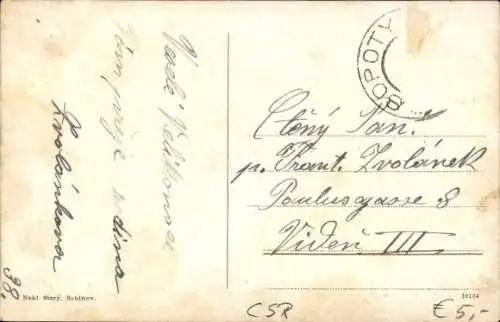 Veselé Velikonoce
Vám přeje rodina
Zvolánkova
38.
Nakl. Starý, Sobinov.
SOPOTY
Ctěný Pan.
p. Frant. Zvolánek
Paulusgasse 8
Videň III
10164
ČSR
€ 5,-